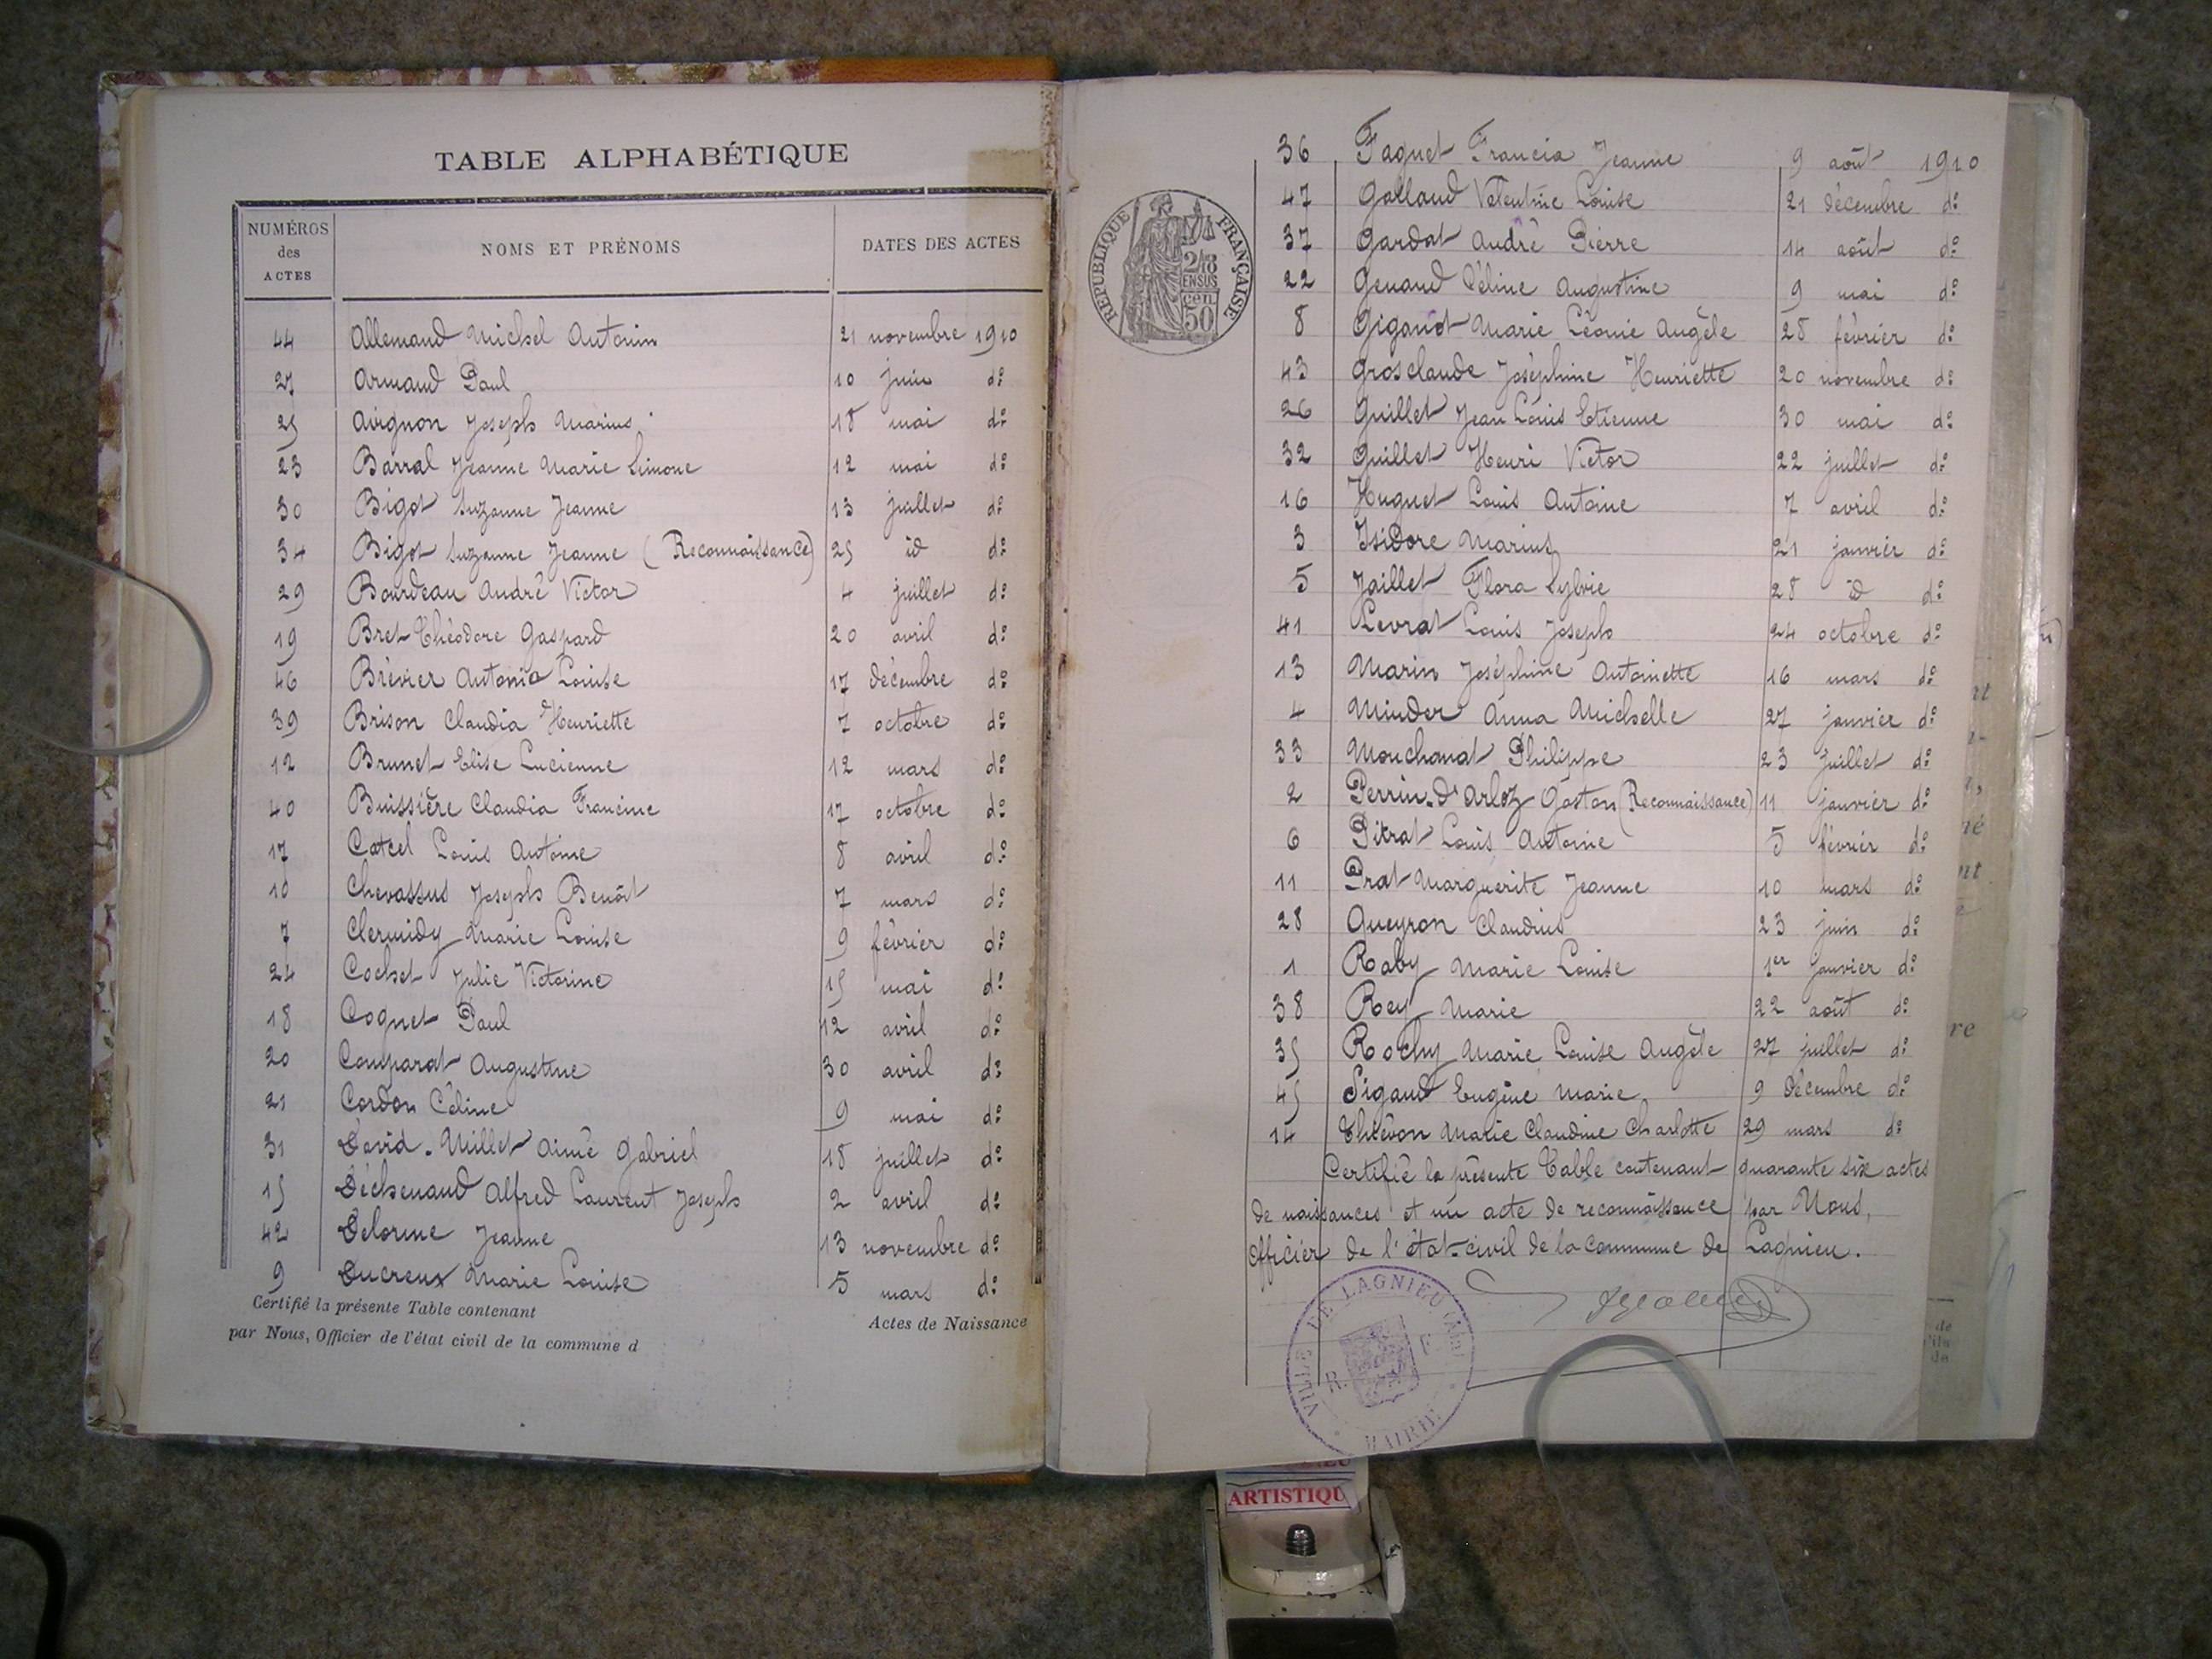 TABLE ALPHABÉTIQUE
NUMÉROS des ACTES NOMS ET PRÉNOMS DATES DES ACTES
44 Allemand Michel Antonin 21 novembre 1910
27 Armand Paul 10 juin do
25 Avignon Joseph Marius 18 mai do
23 Barral Jeanne Marie Simone 12 mai do
30 Bigot Suzanne Jeanne 13 juillet do
34 Bigot Suzanne Jeanne (Reconnaissance) 25 id do
29 Bourdeau André Victor 4 juillet do
19 Bret Théodore Gaspard 20 avril do
46 Brévier Antonia Louise 17 décembre do
39 Brison Claudia Henriette 7 octobre do
12 Brunet Elise Lucienne 12 mars do
40 Buissière Claudia Francine 17 octobre do
17 Catcel Louis Antoine 8 avril do
10 Chevassus Joseph Benoît 7 mars do
7 Clermidy Marie Louise 9 février do
24 Cochet Julie Victorine 15 mai do
18 Cognet Paul 12 avril do
20 Comparat Augustine 30 avril do
21 Cordon Céline 9 mai do
31 David-Millet Aimé Gabriel 18 juillet do
15 Déchenaud Alfred Laurent Joseph 2 avril do
42 Delorme Jeanne 13 novembre do
9 Ducreux Marie Louise 5 mars do
Certifié la présente Table contenant Actes de Naissance
par Nous, Officier de l'état civil de la commune d
36 Faguet Francia Jeanne 9 août 1910
47 Galland Valentine Louise 21 décembre do
37 Gardat André Pierre 14 août do
22 Genaud Céline Augustine 9 mai do
8 Gigandt Marie Léonie Angèle 28 février do
43 Grosclaude Joséphine Henriette 20 novembre do
26 Guillet Jean Louis Etienne 30 mai do
32 Guillet Henri Victor 22 juillet do
16 Huguet Louis Antoine 7 avril do
3 Isidore Marius 21 janvier do
5 Jaillet Flora Sylvie 28 id do
41 Levrat Louis Joseph 24 octobre do
13 Marin Joséphine Antoinette 16 mars do
4 Minder Anna Michelle 27 janvier do
33 Mouchanat Philippe 23 juillet do
2 Perrin-d'Arloz Gaston (Reconnaissance) 11 janvier do
6 Pitrat Louis Antoine 5 février do
11 Prat Marguerite Jeanne 10 mars do
28 Queyron Claudius 23 juin do
1 Raby Marie Louise 1er janvier do
38 Rey Marie 22 août do
35 Rochy Marie Louise Angèle 27 juillet do
45 Sigaud Eugène Marie 9 décembre do
14 Thévon Marie Claudine Charlotte 29 mars do
Certifié la présente Table contenant quarante six actes
de naissances et un acte de reconnaissance par Nous,
Officier de l'état-civil de la commune de Lagnieu.
RÉPUBLIQUE FRANÇAISE
2/10
EN SUS
cen
50
VILLE DE LAGNIEU (Ain)
R. F.
MAIRIE
ARTISTIQU